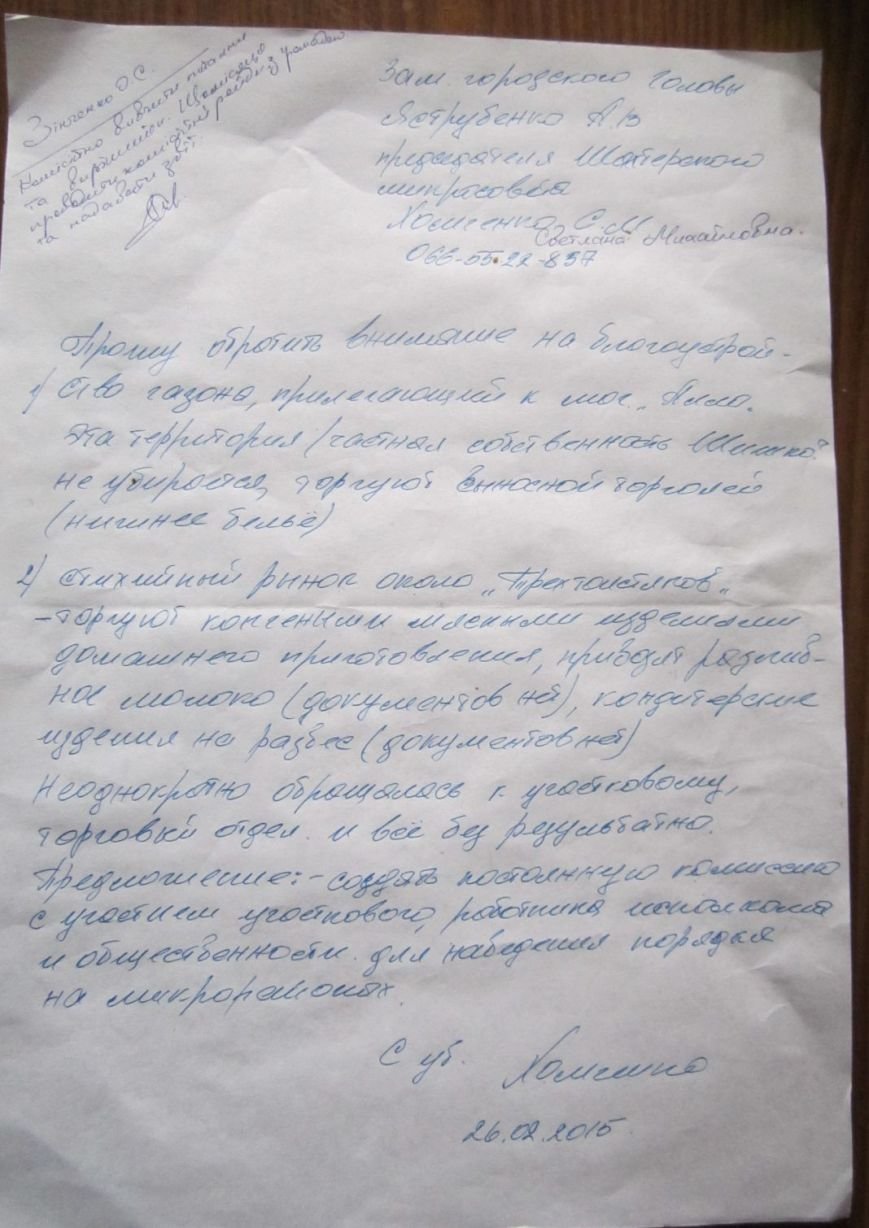 Зінченко О.С.
вивчити питання
та вирішити. Щомісячно
проводити комісійні рейди з громадою
та надавати звіт.
Зам. городского головы
Яструбенко А.В
председателя Шахтерского
микросовета
Хоменко С.М
Светлана Михайловна.
066-55-22-837
Прошу обратить внимание на благоустрой-
1) ство газона, прилегающий к маг. „Алло„
Эта территория (частная собственность
не убирается, торгуют выносной торговлей
(нижнее бельё)
2) стихийный рынок около „Трехтолстяков„
- торгуют копчеными мясными изделиями
домашнего приготовления, привозят разлив-
ное молоко (документов нет), кондитерские
изделия на развес (документов нет)
Неоднократно обращалась к участковому,
торговый отдел. и всё без результатно.
Предложение: - создать постоянную комиссию
с участием участкового, работника исполкома
и общественности. для наведения порядка
на микрорайонах.
С ув. Хоменко
26.02.2015